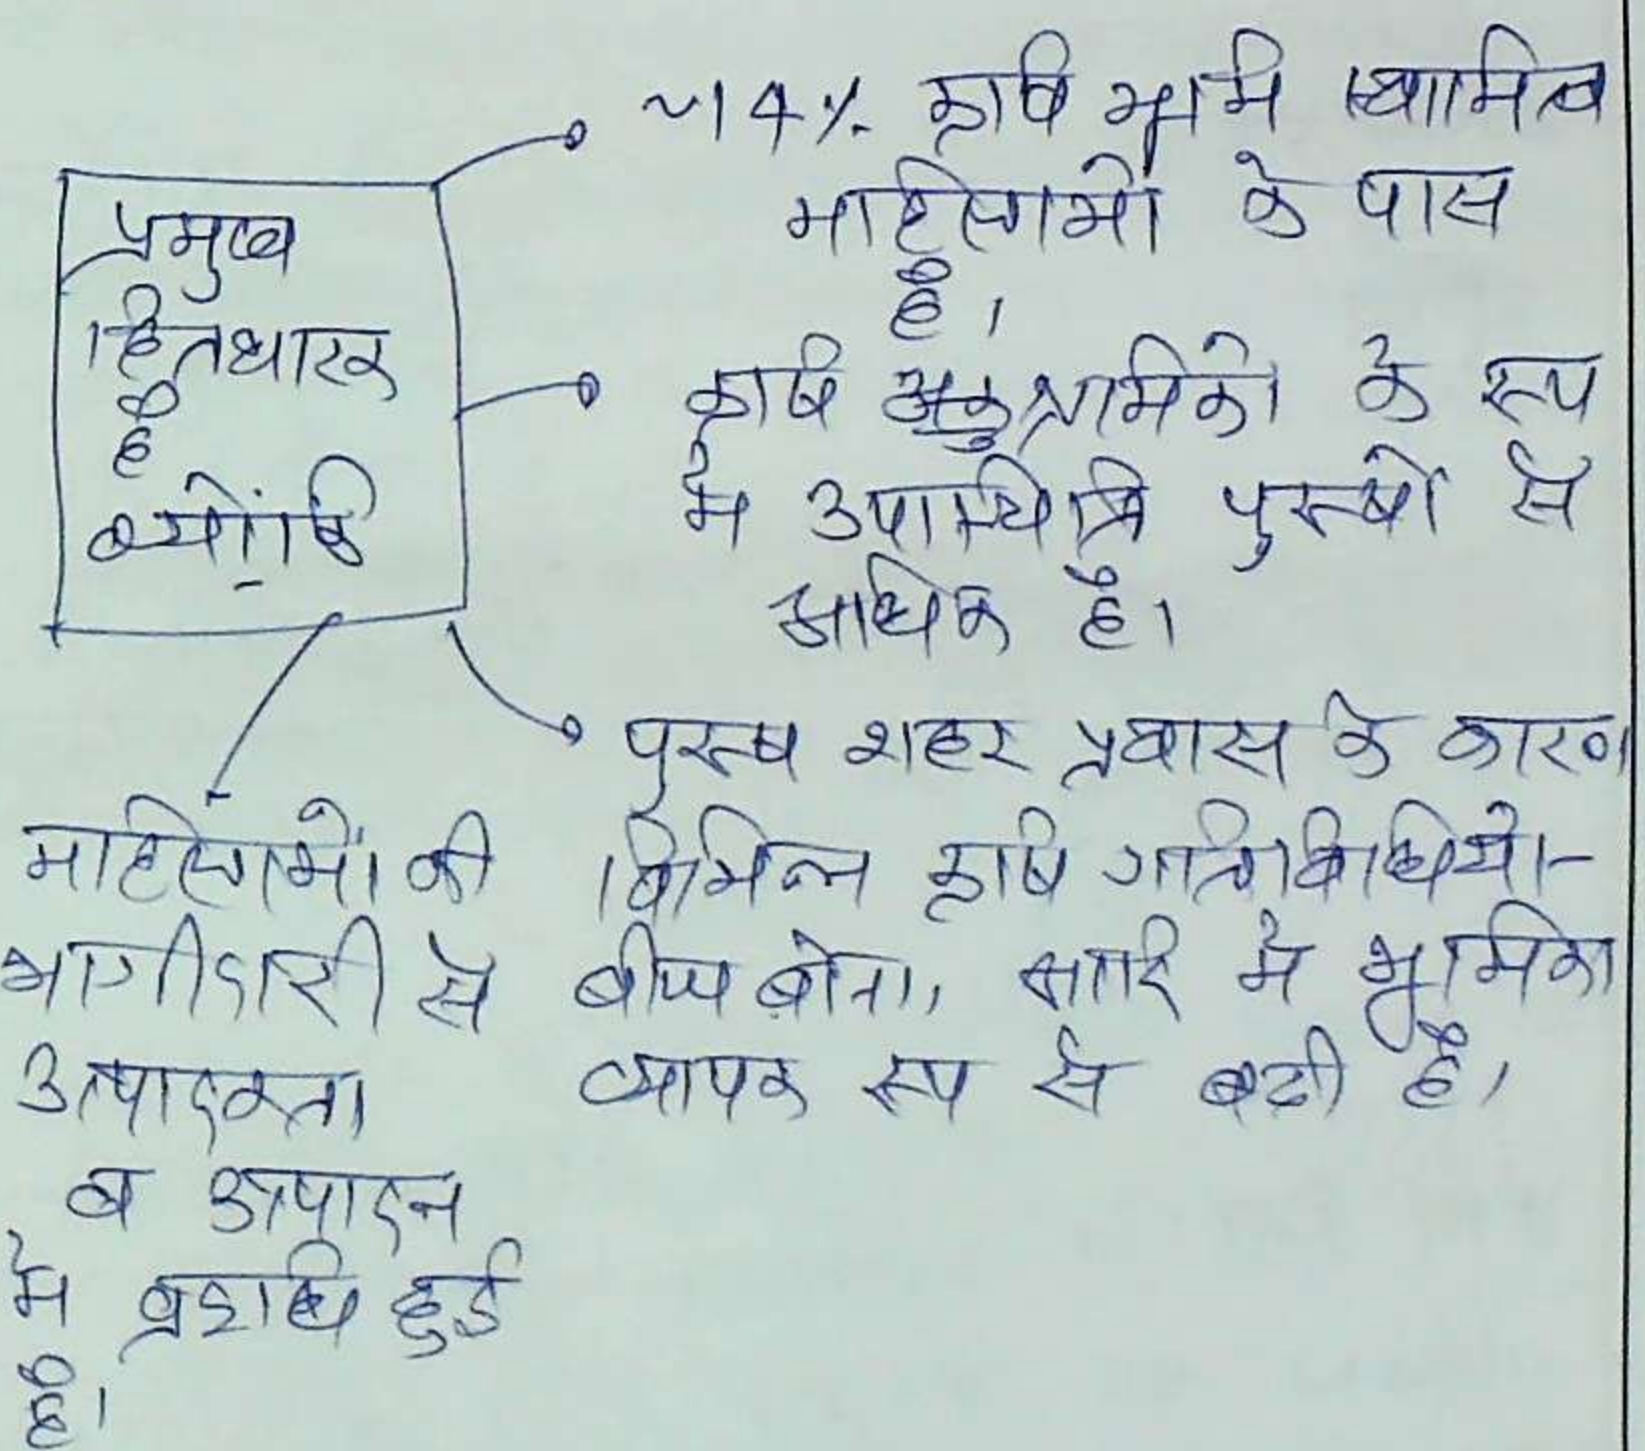 प्रमुख
हितधारक
है
क्योंकि
~14% कृषि भूमि स्वामित्व
महिलाओं के पास
है।
कृषि श्रमिकों के रूप
में उपस्थिति पुरूषों से
अधिक है।
पुरूष शहर प्रवास के कारण
विभिन्न कृषि गतिविधियों-
बीज बोना, आदि में भूमिका
व्यापक रूप से बढी है।
महिलाओं की
भागीदारी से
उत्पादकता
व उत्पादन
में वृद्धि हुई
है।